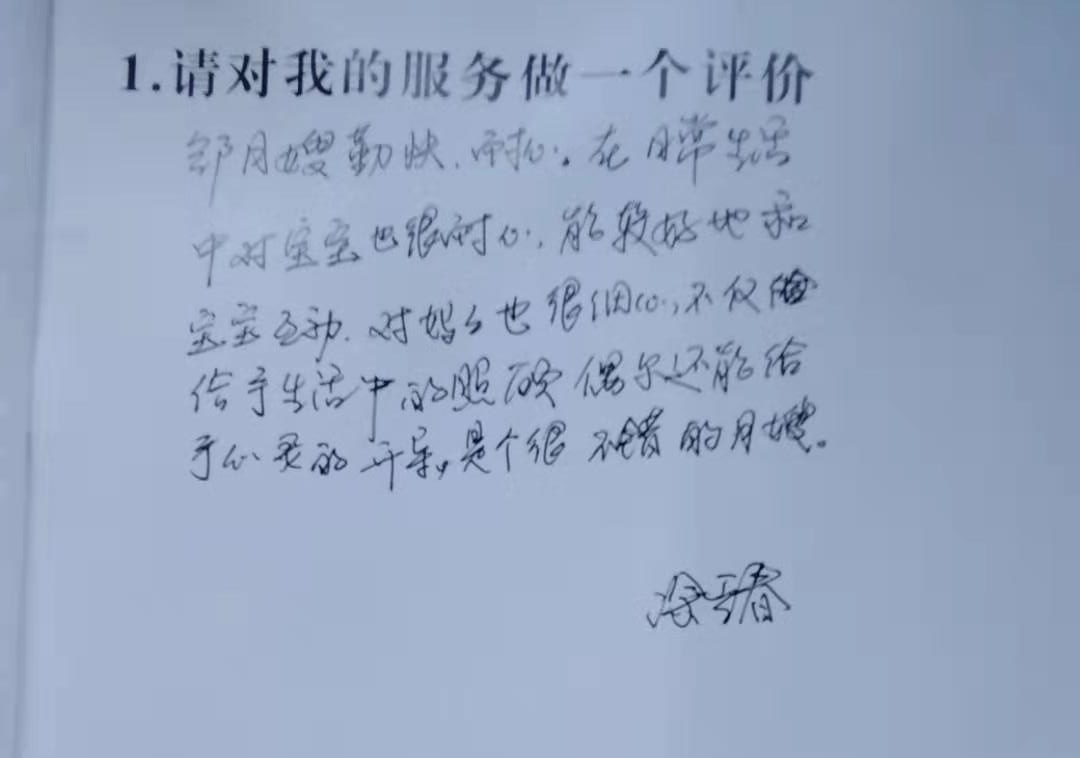 1.请对我的服务做一个评价
邹月嫂勤快、耐心。在日常生活
中对宝宝也很耐心，能较好地和
宝宝互动．对妈妈也很细心，不仅能
给予生活中的照顾 偶尔还能给
予心灵的开导，是个很不错的月嫂。